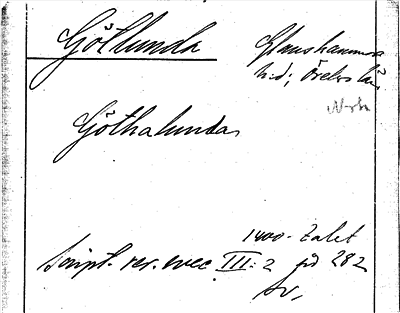 Götlunda Glanshammars
hd; Örebro län
Göthalunda
1400-talet
Script. rer. svec III:2 pd 282